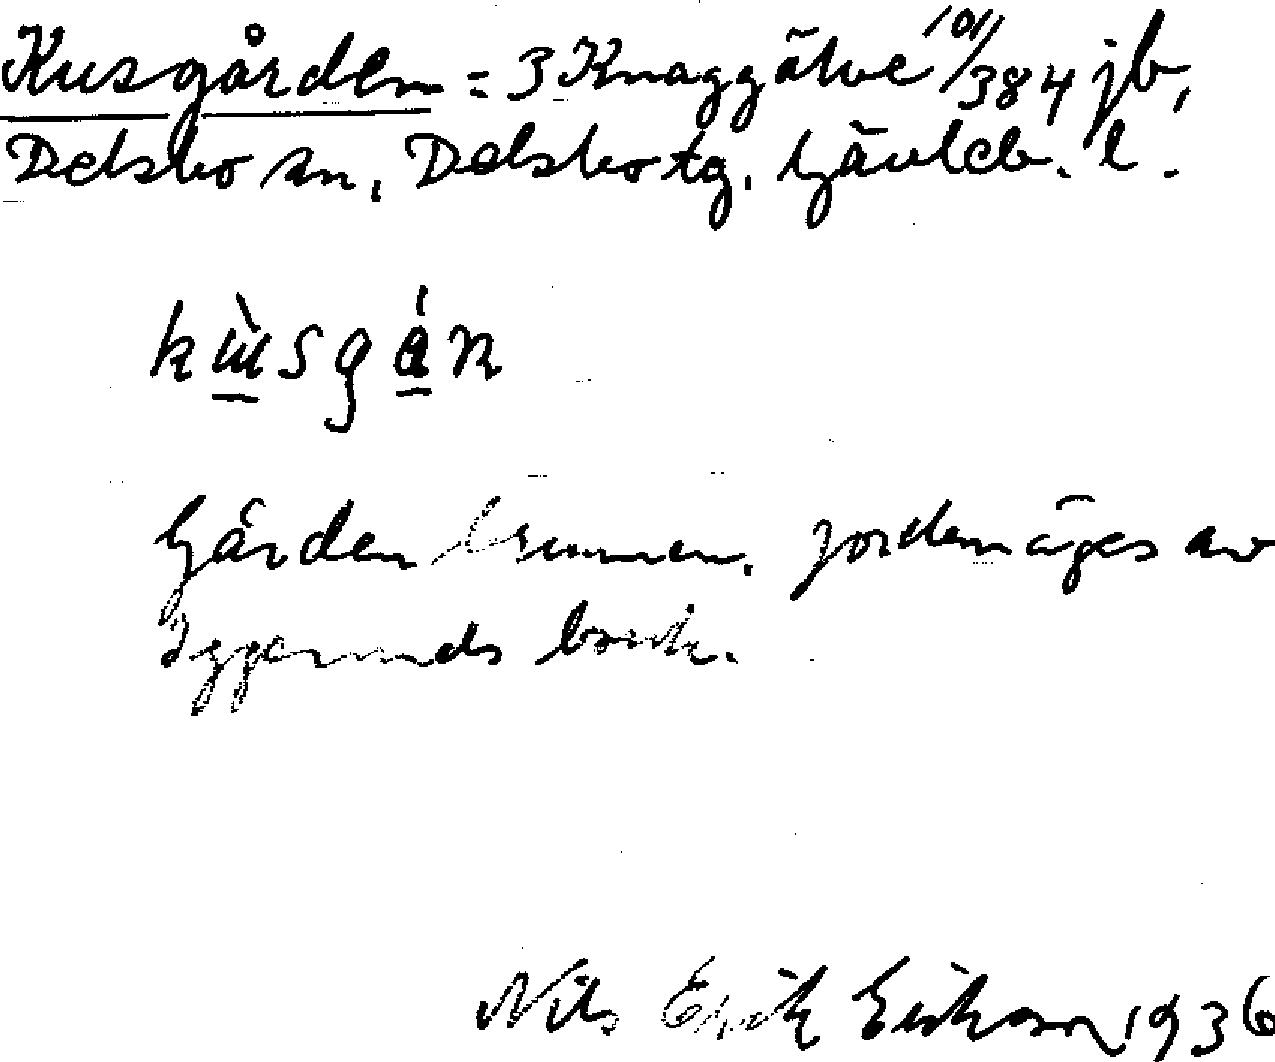 Kusgården = 3 Knaggälve 101/384 jb,
Delsbo sn, Delsbo tg, Gävleb. l.
kùsgán
Gården brunnen. Jorden äges av
Iggesunds bruk.
Nils Erik Eriksson 1936